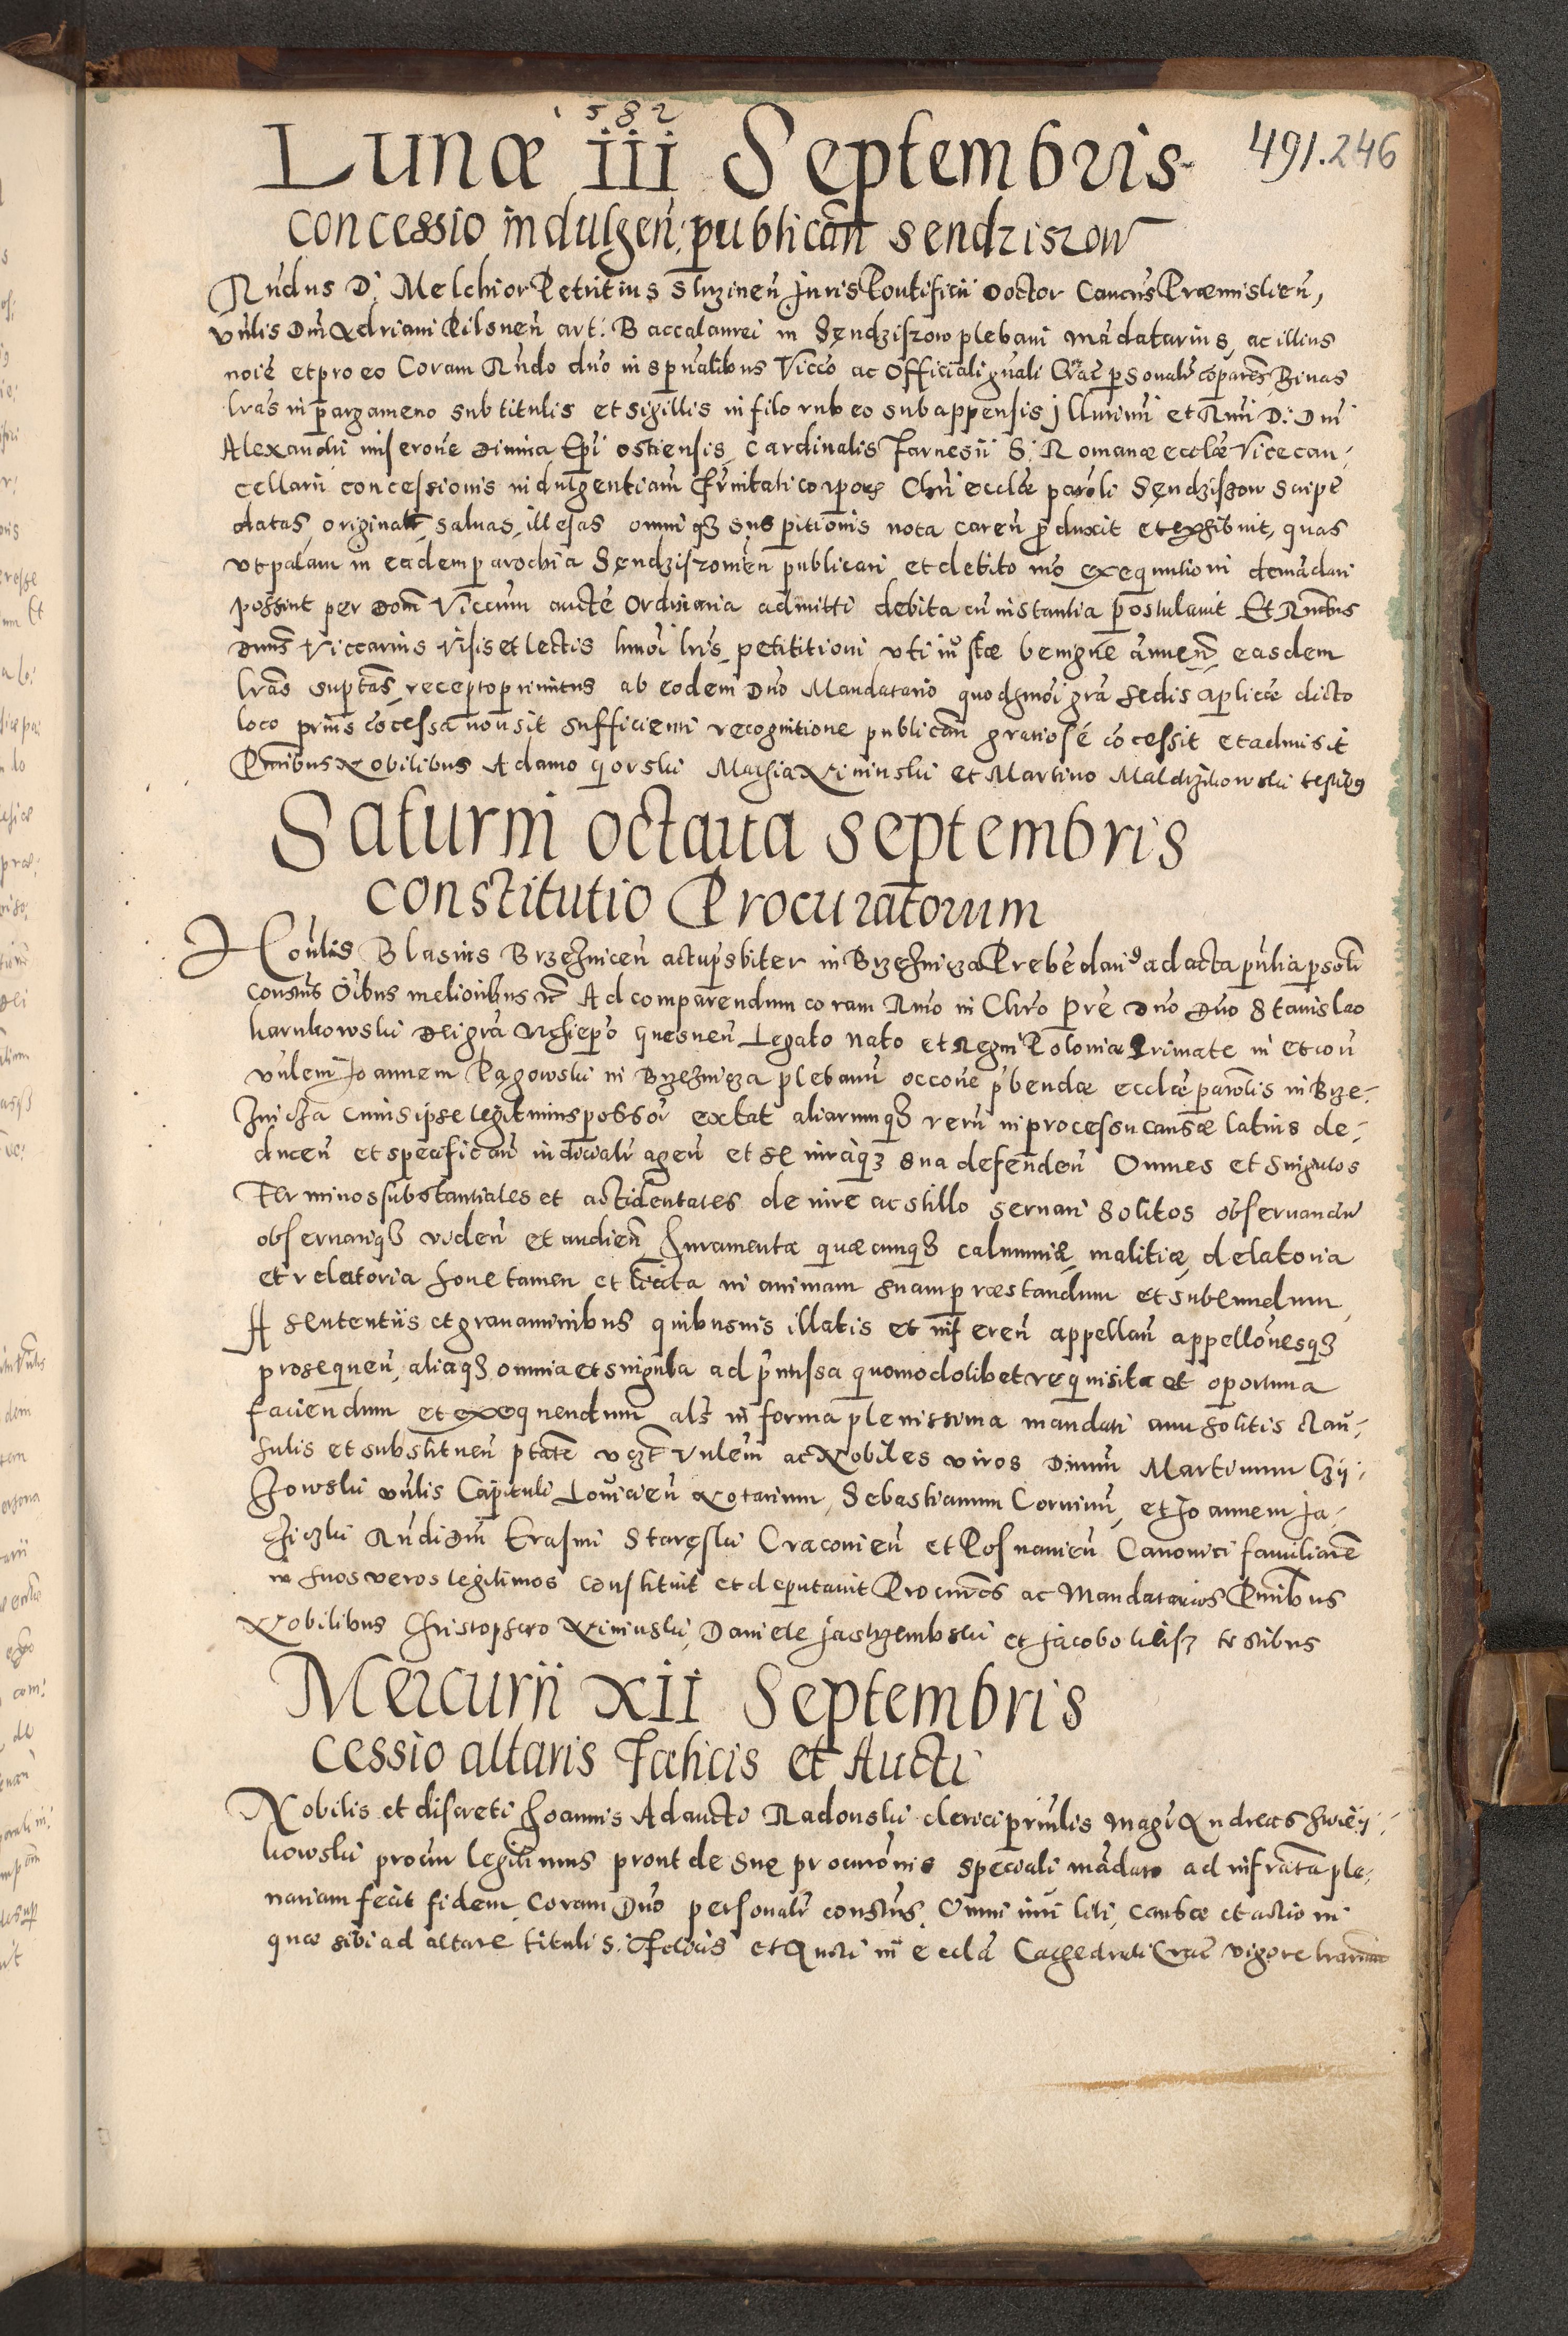 1582
Lunæ iii Septembris
491. 246
concessio indulgen: publican̄ sendziszow
Rn̄dus D: Melchior Petritius Strziznen̄ Juris Pontificii Doctor Canc̄us Præmislien̄,
vn̄lis Dn̄i Adriani Pilsnen̄ art: Baccalaurei in Sendziszow plebani mādatarius, ac illius
noīe et pro eo Coram Rn̄do dn̄o in spūalibus Vicc̄o ac Officiali gn̄ali Crac̄ personalr̄ cōparen̄s, Binas
lr̄as in pargameno sub titulis et sigillis in filo rubeo subappensis Jllmi et Rmi D: Dn̄i
Alexandri miserōne diuina Epī ostiensis, Cardinalis Farnesii S: Romanæ ecclæ Vicecan,,
cellarii concessionis indulgentiarū fr̄nitati corporis Chrī ecclæ parōli Sendziszow scripē
datas, originalr̄, saluas, illesas omniq3 suspitionis nota caren̄ produxit et exhibuit, quas
vt palam in eadem parochia Sendziszowien̄ publicari et debito mō exequutioni demādari
possint per Dom̄ Viccūm aucte Ordinaria admitti debita cū instantia postulauit Et Rn̄dus
dn̄us Viccarius visis et lectis hmōi lr̄is, petititioni vti iustæ benigne annuen̄, easdem
lr̄as suptās, recepto primitus ab eodem Dn̄o Mandatario quod hmōi grā sedis aplicæ dicto
loco prius cōcessa non sit sufficienti recognitione publicān gratiose cōcessit et admisit
Pn̄tibus Nobilibus Adamo gorski Mathia Xininski et Martino Maldrzikowski testibus
Saturni octaua septembris
constitutio Procuratorum
Hon̄lis Blasius Brzeznicen̄ actu p̄sbiter in Brzeznicza Prebēdarius ad acta pn̄tia personlr̄
constūs Oībus melioribus etc Ad comparendum coram Rmo in Chrō Pre Dn̄o Dn̄o Stanislao
karnkowski Dei grā Archiepō gnesnen̄ Legato nato et Regni Poloniæ Primate in et con̄
vn̄lem Joannem Pągowski in Brzeznicza plebanū occōne p̄bendæ ecclæ parōlis in Brze,,
znicza cuius ipse legitimus possor̄ extat aliarumq3 rerū in processu causæ latius de,,
ducen̄ et specifican̄ iudicialr̄ agen̄ et se iuraq3 sua defenden̄ Omnes et singulos
Terminos substantiales et accidentales de iure ac stillo seruari solitos obseruandū
obseruariq3 viden̄ et audien̄ Juramenta quæcunq3 calumniæ, malitiæ, delatoria
et relatoria hone tamen et licita in animam suam præstandum et subeundum,
A sententiis et grauaminibus quibusuis illatis et inferen̄ appellan̄ appellōnesq3
prosequen̄, aliaq3 omnia et singula ad p̄missa quomodolibet requisita et oportuna
faciendum et exequendum als̄ in forma plenissima mandati cum solitis clau,,
sulis et substituen̄ ptātē vc3t vn̄lem ac Nobiles viros Dn̄um Martinum
vn̄lis Capituli Louicien̄ Notarium, Sebastianum Coruinū, et Joannem Ja,,
Rn̄di Dn̄i Erasmi Staręski Cracouien̄ et Posnanien̄ Canonici familiarē
suos veros legitimos constituit et deputauit Procur̄es ac Mandatarios Pn̄tibus
Nobilibus Christophero Xininski, Daniele Jastrzembski et Jacobo testibus
Mercurii XII Septembris
cessio altaris Fælicis et Aucti
Nobilis et discreti Joannis Adaucti Radonski clerici principalis magr̄ Andreas
procur̄ legitimus prout de suę procurōnis speciali mādato ad infrāta ple,,
nariam fecit fidem, Coram Dn̄o personalr̄ constūs, Omni iuri liti, causæ et actioni
quæ sibi ad altare tituli S: Fælicis et Aucti in ecclā Cathedrali Crac̄ vigore lrarum